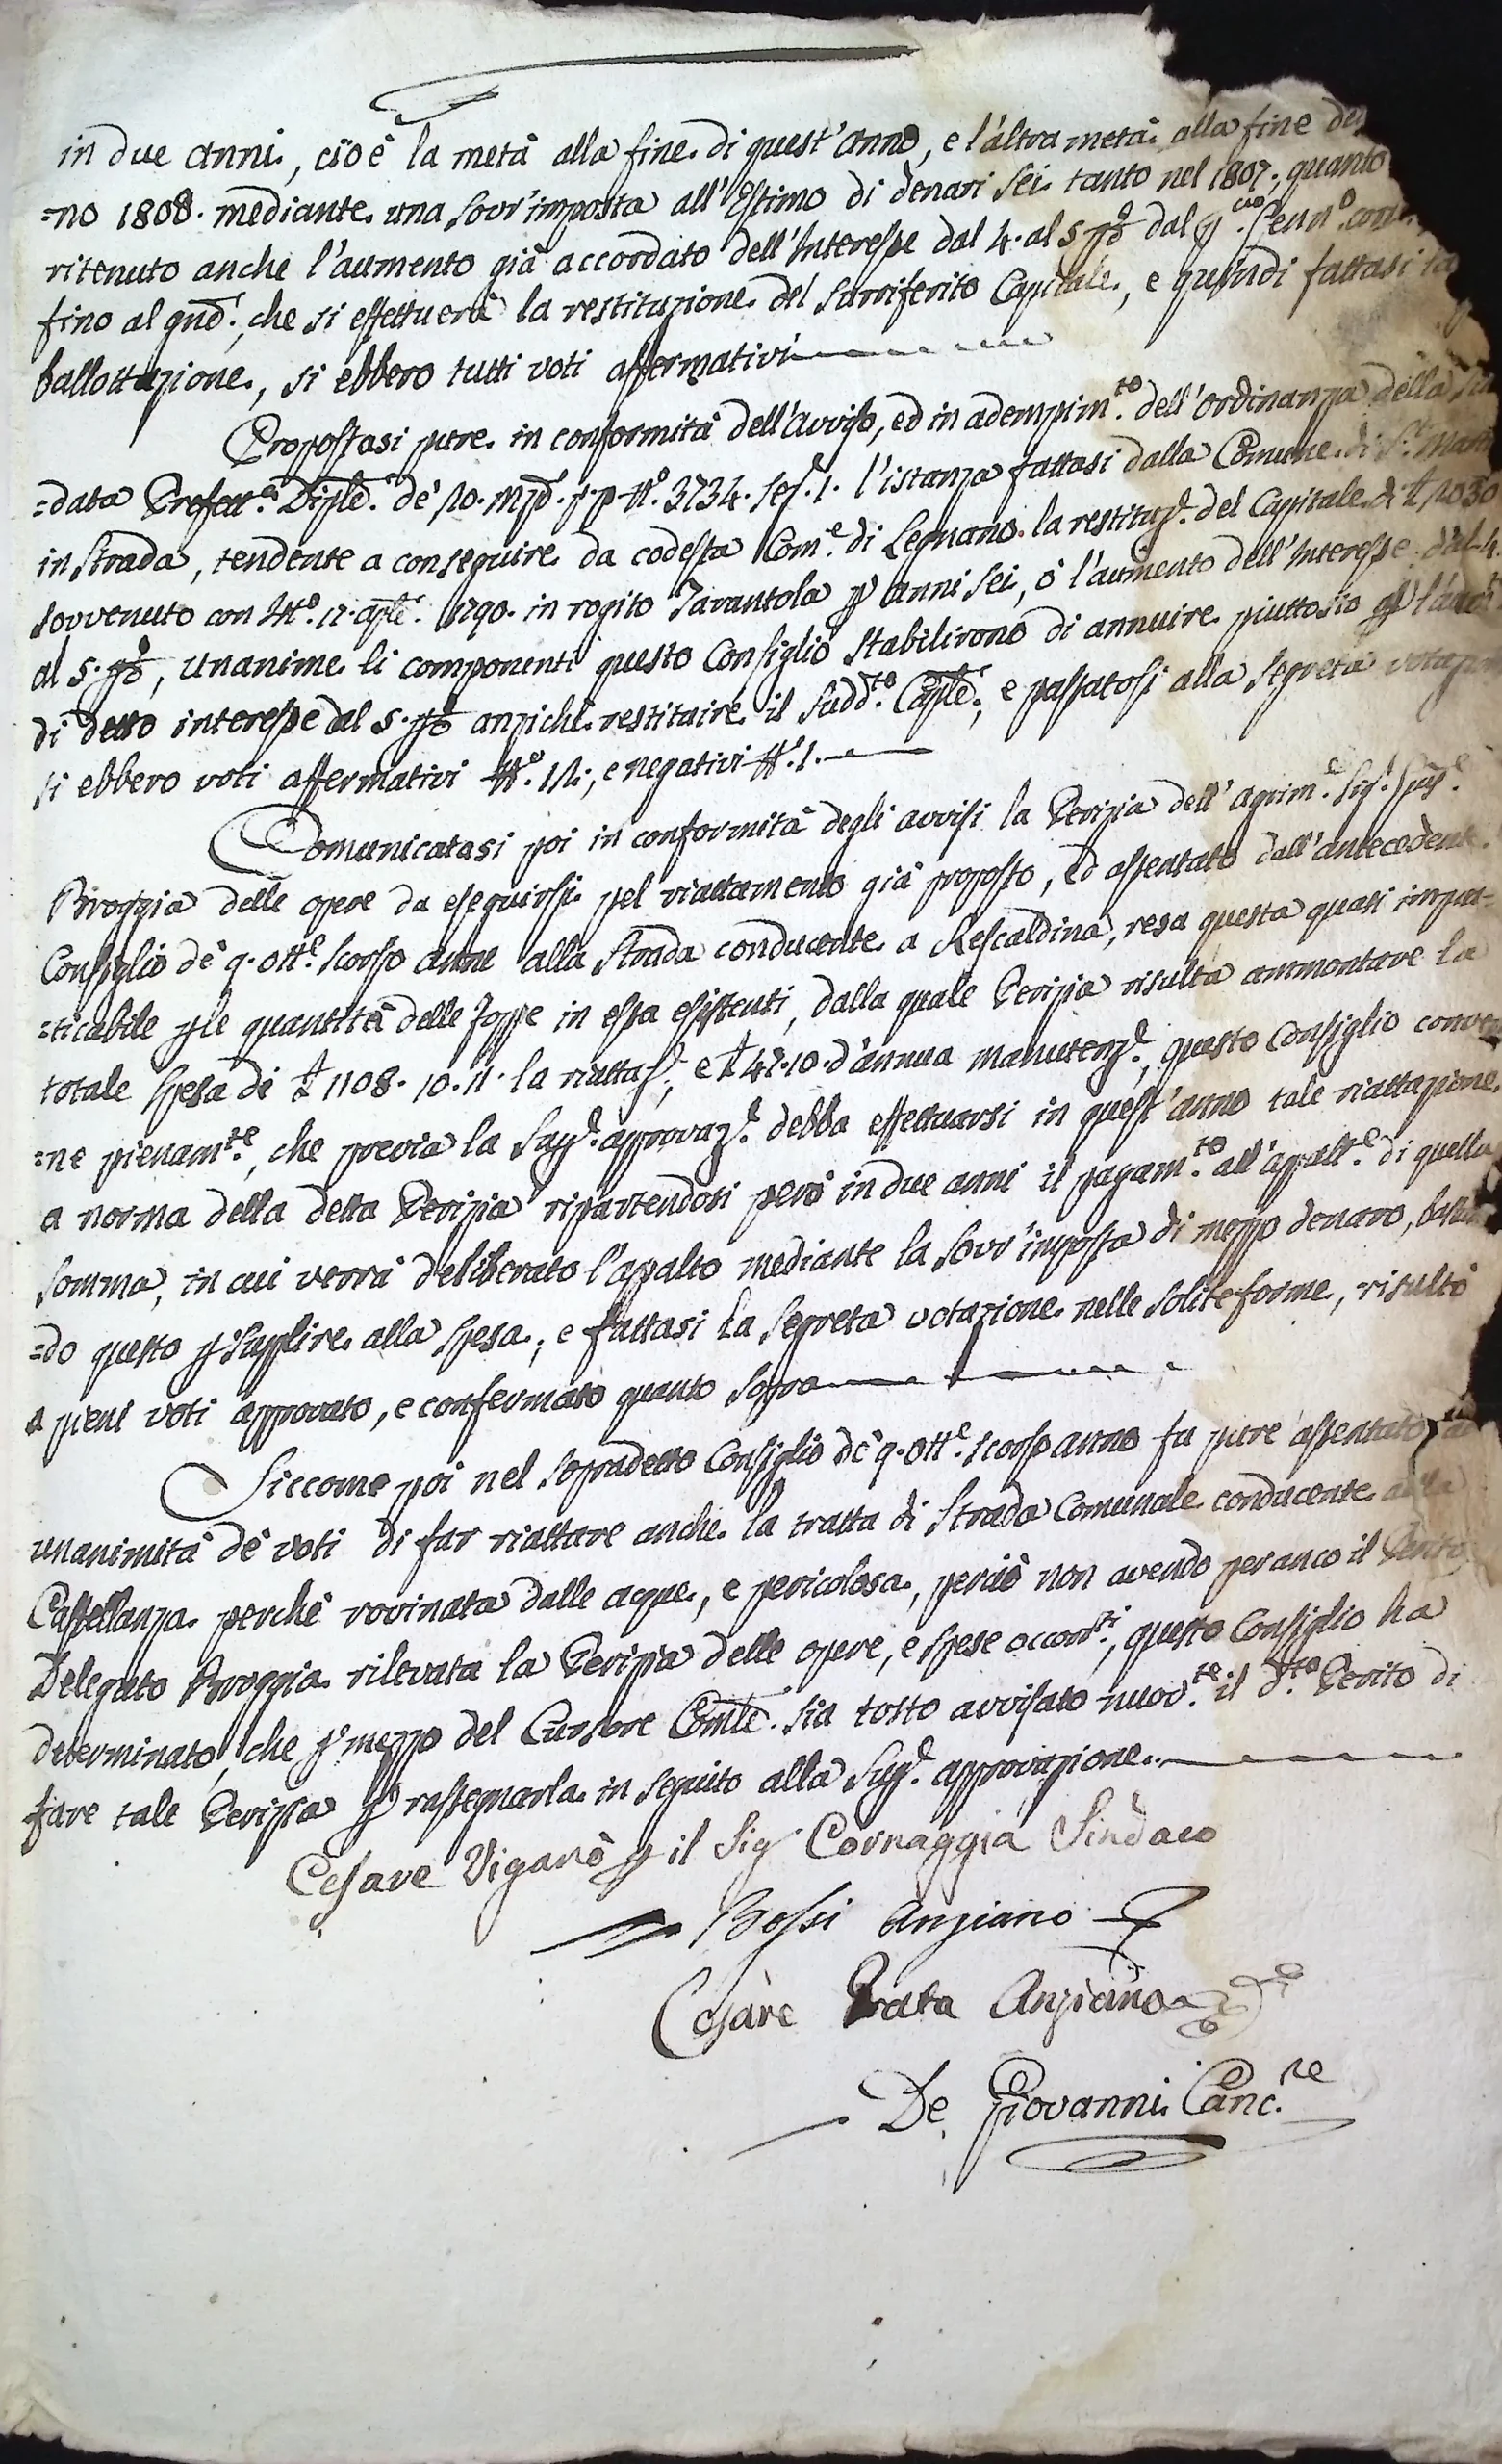 in due anni, cioè la metà alla fine di quest'anno, e l'altra metà alla fine de
=no 1808. mediante una sovr'imposta all'Estimo di denari sei tanto nel 1807., quanto
ritenuto anche l'aumento già accordato dell'Interesse dal 4. al 5 p% dal p.mo Genn.o corr.
fino al qnd.o, che si effettuerà la restituzione del surriferito Capitale, e quindi fattasi
ballottazione, si ebbero tutti voti affermativi
Propostasi pure in conformità dell'Avviso, ed in adempim.to dell'ordinanza della
=data Prefett.a Diple. de' 20. p.p. N.o 3734. Sez. 1. l'istanza fattasi dalla Comune di S.t
in Strada, tendente a conseguire da codesta Com.e di Legnano la restituz.e del Capitale di £ 2030
sovvenuto con 12. aple. 1790. in rogito Tarantola p anni sei, ò l'aumento dell'Interesse dal 4.
al 5. p%, unanime li componenti questo Consiglio stabilirono di annuire piuttosto p
di detto interesse al 5. p% anziché restituire il sudd.to Caple., e passatosi alla segreta votazione
si ebbero voti affermativi N.o 12., e negativi N.o 1.
Comunicatasi poi in conformità degli avvisi la Perizia dell'agrim.e Sig.r Gius.e
Broggia delle opere da eseguirsi pel riattamento già proposto, ed assentato dall'antecedente
Consiglio de' 9. Ott.e scorso anno alla Strada conducente a Rescaldina, resa questa quasi impra=
=ticabile p le quantità delle Zoppe in essa esistenti, dalla quale Perizia risulta ammontare la
totale spesa di £ 1108. 10. 11. la riattaz.e, e £ 42. 10. d'annua manutenz.e, questo Consiglio conve
=ne pienam.te, che previa la Sup.e approvaz.e debba effettuarsi in quest'anno tale riattazione
a norma della detta Perizia ripartendosi però in due anni il pagam.to all'appalt.e di quella
somma, in cui verrà deliberato l'apalto mediante la sovr'imposta di mezzo denaro, bastan
=do questo p supplire alla spesa, e fattasi la segreta votazione nelle solite forme, risultò
a pieni voti approvato, e confermato quanto sopra
Siccome poi nel sopradetto Consiglio de' 9. Ott.e scorso anno fu pure assentato
unanimità de' voti di far riattare anche la tratta di Strada Comunale conducente alla
Castellanza perchè rovinata dalle acque, e pericolosa, perciò non avendo peranco il Perito
Delegato Broggia rilevata la Perizia delle opere, e spese occorr.ti, questo Consiglio ha
determinato, che p mezzo del Cursore Comle. sia tosto avvisato nuov.te il d.to Perito di
fare tale Perizia p rassegnarla in seguito alla Sup.e approvazione.
Cesare Viganò p il Sig.r Cornaggia Sindaco
Bossi Anziano
Cesare Prata Anziano
De Giovanni Canc.re